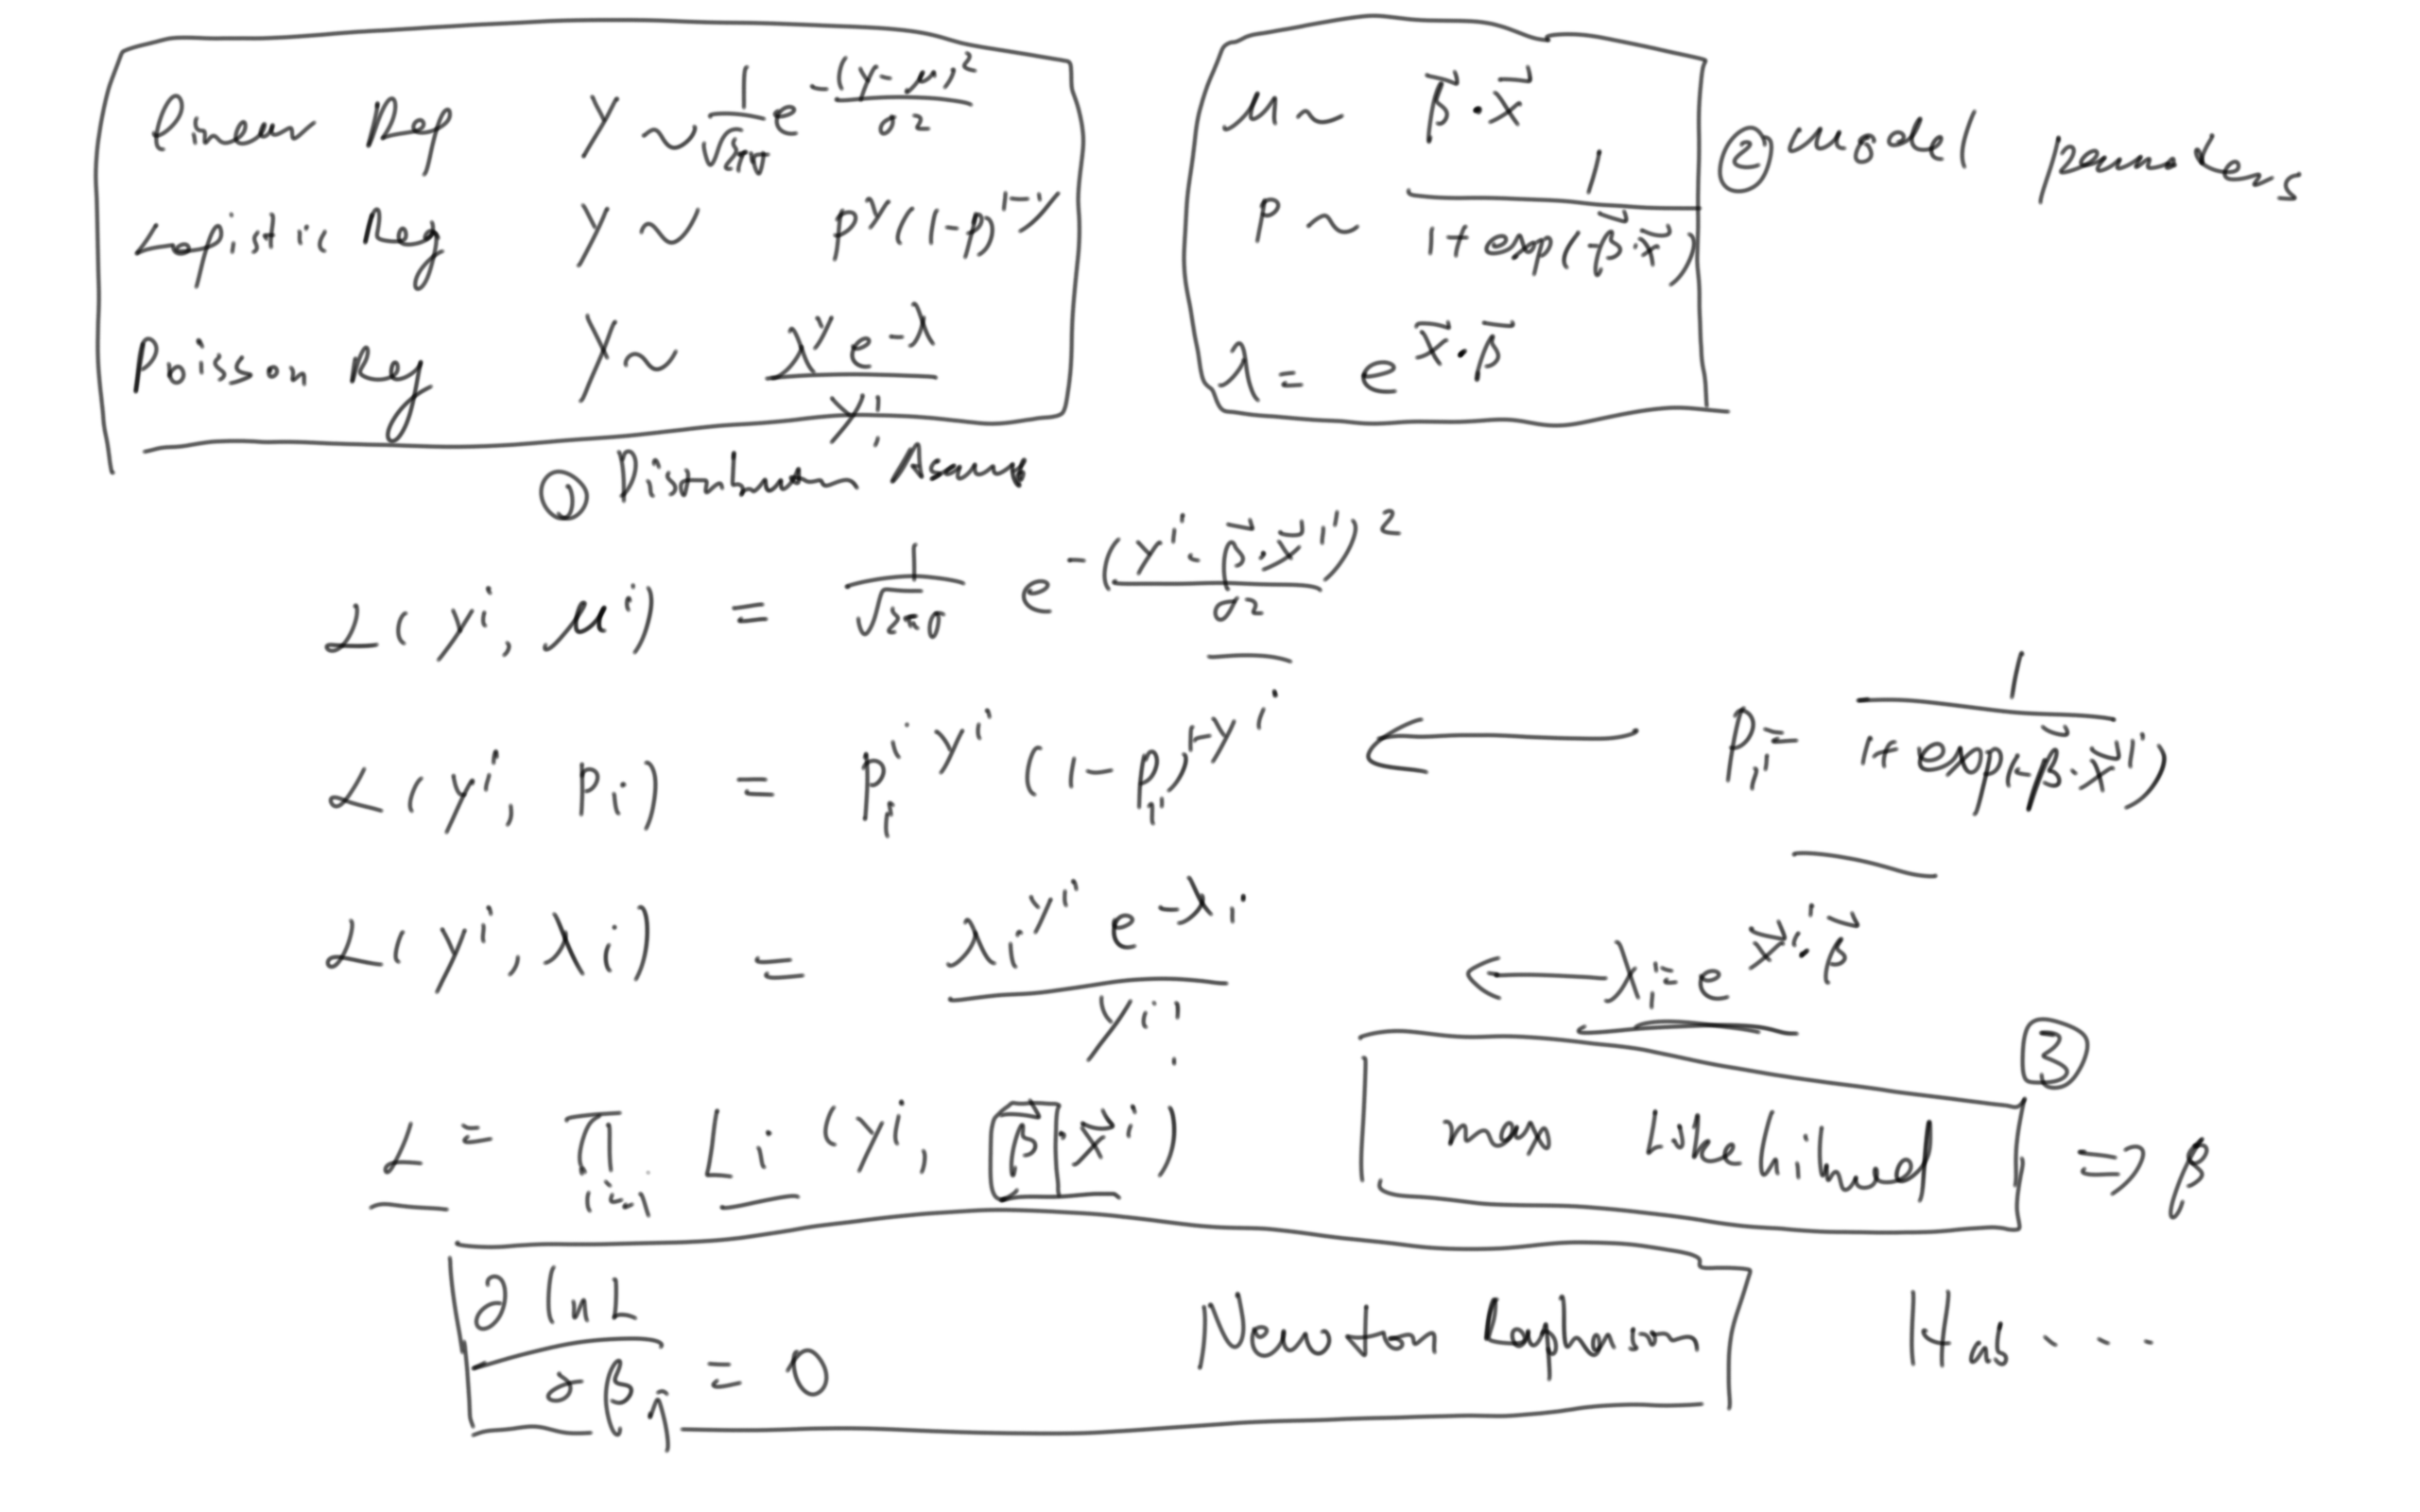 Linear Reg Y ~ 1/√2πσ e^-(y-μ)²/σ²
Logistic Reg Y ~ p^y(1-p)^1-y
Poisson Reg Y ~ λ^y e^-λ / y!
① Distribution Assump
μ ~ β⃗·x⃗
P ~ 1/1+exp(-β⃗·x⃗)
λ = e^x⃗·β⃗
② model parameters
L(yⁱ, μⁱ) = 1/√2πσ e^-(yⁱ-β⃗·x⃗ⁱ)²/σ²
L(yⁱ, Pi) = pi^yⁱ (1-pi)^1-yⁱ ← Pi = 1/1+exp(-β⃗·x⃗ⁱ)
L(yⁱ, λi) = λi^yⁱ e^-λi / yi! ← λi = e^x⃗ⁱ·β⃗
L = π i=1 Li (yi, β⃗·x⃗ⁱ) max Likelihood ③ ⇒ β
∂ lnL / ∂βj = 0 Newton Raphson